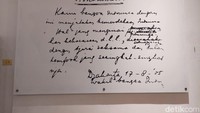 Kami bangsa Indonesia dengan
ini menjatakan kemerdekaan Indonesia.
Hal2 jang mengenai
kekoeasaan d.l.l.,
dengan tjara saksama dan dalam
tempoh jang sesingkat-singkat
nja.
Djakarta, 17 - 8 - '05
Wakil2 bangsa Indon.
detikcom